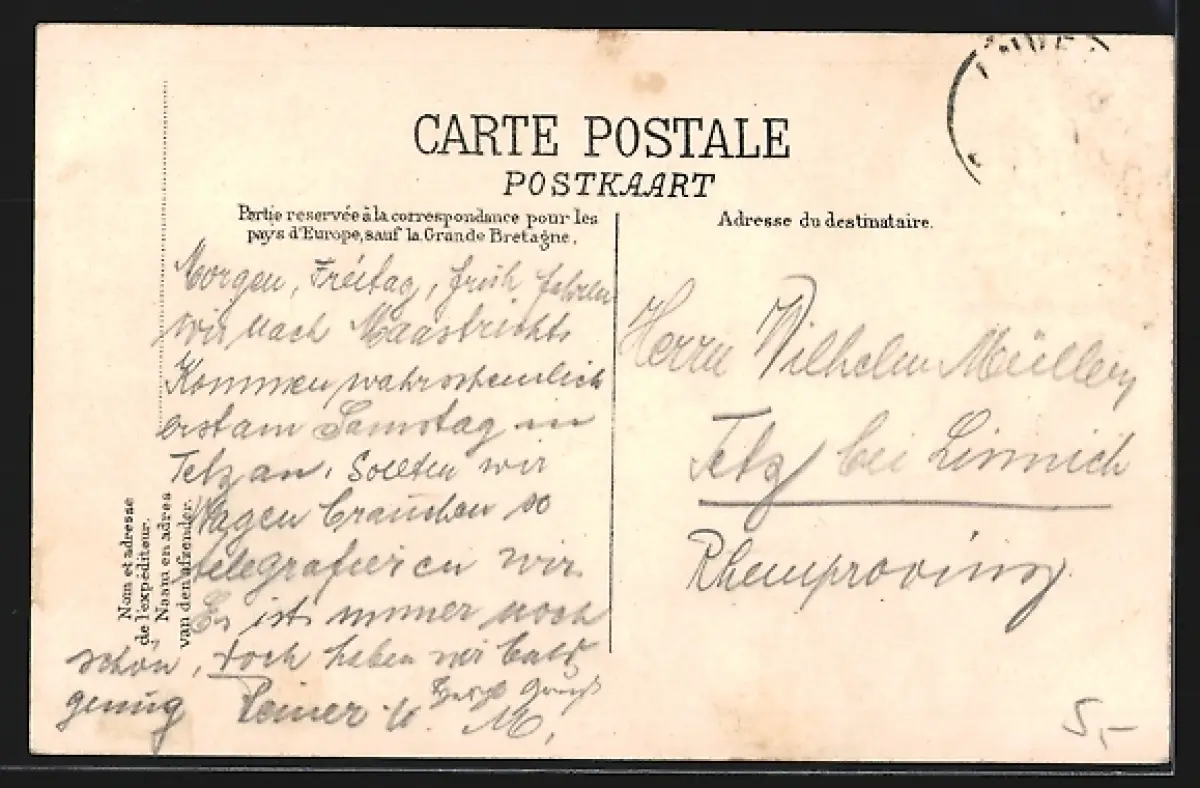 CARTE POSTALE
POSTKAART
Partie reservée à la correspondance pour les
pays d'Europe, sauf la Grande Bretagne.
Adresse du destinataire.
Nom et adresse
de l'expéditeur.
Naam en adres
van den afzender.
Morgen, Freitag, früh fahren
wir nach Maastricht
Kommen wahrscheinlich
erst am Samstag in
Tetz an. Sollten wir
Wagen brauchen so
telegrafieren wir
Es ist immer noch
schön, doch haben wir bald
genug
Herrn Wilhelm Müller
Tetz bei Linnich
Rheinprovinz
5,-